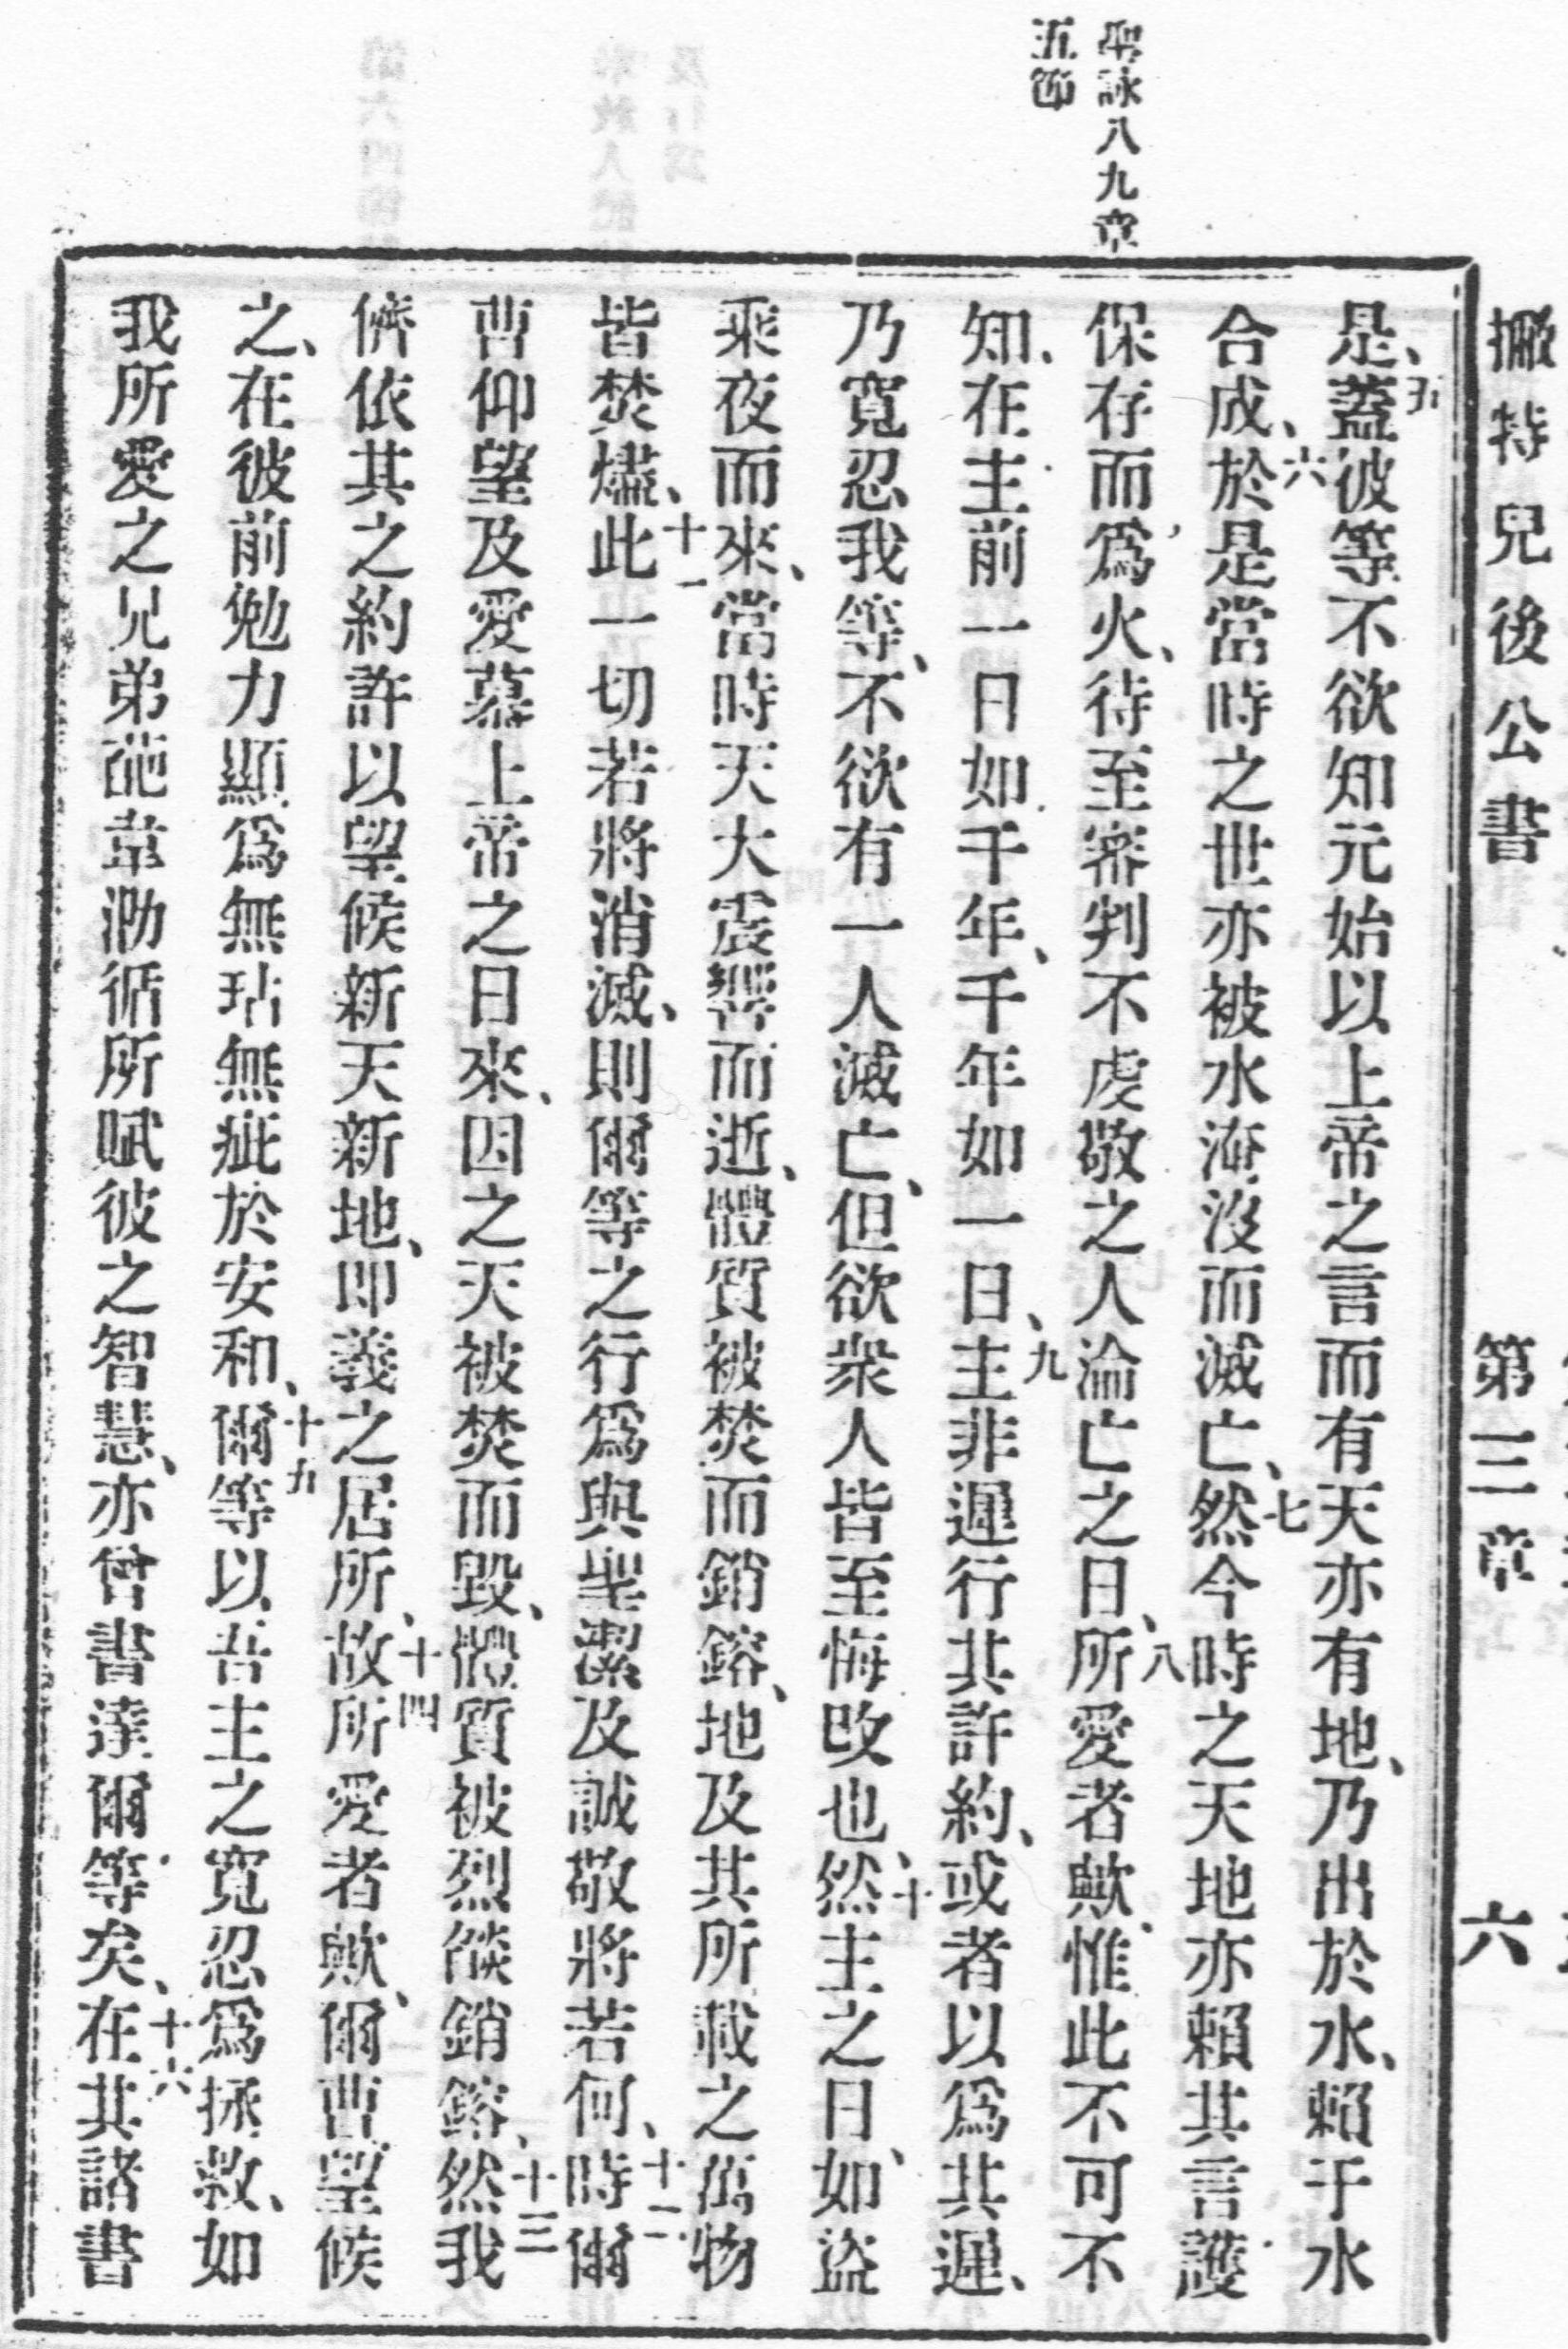 聖詠八九章
五節
撇特兒後公書　第三章　六
是、五蓋彼等不欲知元始以上帝之言而有天亦有地、乃出於水、賴于水
合成、六於是當時之世亦被水淹沒而滅亡、七然今時之天地亦賴其言護
保存而爲火、待至審判不虔敬之人淪亡之日、八所愛者歟、惟此不可不
知、在主前一日如千年、千年如一日、九主非遲行其許約、或者以爲其遲、
乃寬忍我等、不欲有一人滅亡、但欲衆人皆至悔改也、十然主之日、如盜
乘夜而來、當時天大震響而逝、體質被焚而銷鎔、地及其所載之萬物
皆焚燼、十一此一切若將消滅、則爾等之行爲與聖潔及誠敬將若何、十二時爾
曹仰望及愛慕上帝之日來、因之天被焚而毀、體質被烈燄銷鎔、十三然我
儕依其之約許以望候新天新地、即義之居所、十四故所愛者歟、爾曹望候
之、在彼前勉力顯爲無玷無疵於安和、十五爾等以吾主之寬忍爲拯救、如
我所愛之兄弟葩韋泐循所賦彼之智慧、亦曾書達爾等矣、十六在其諸書